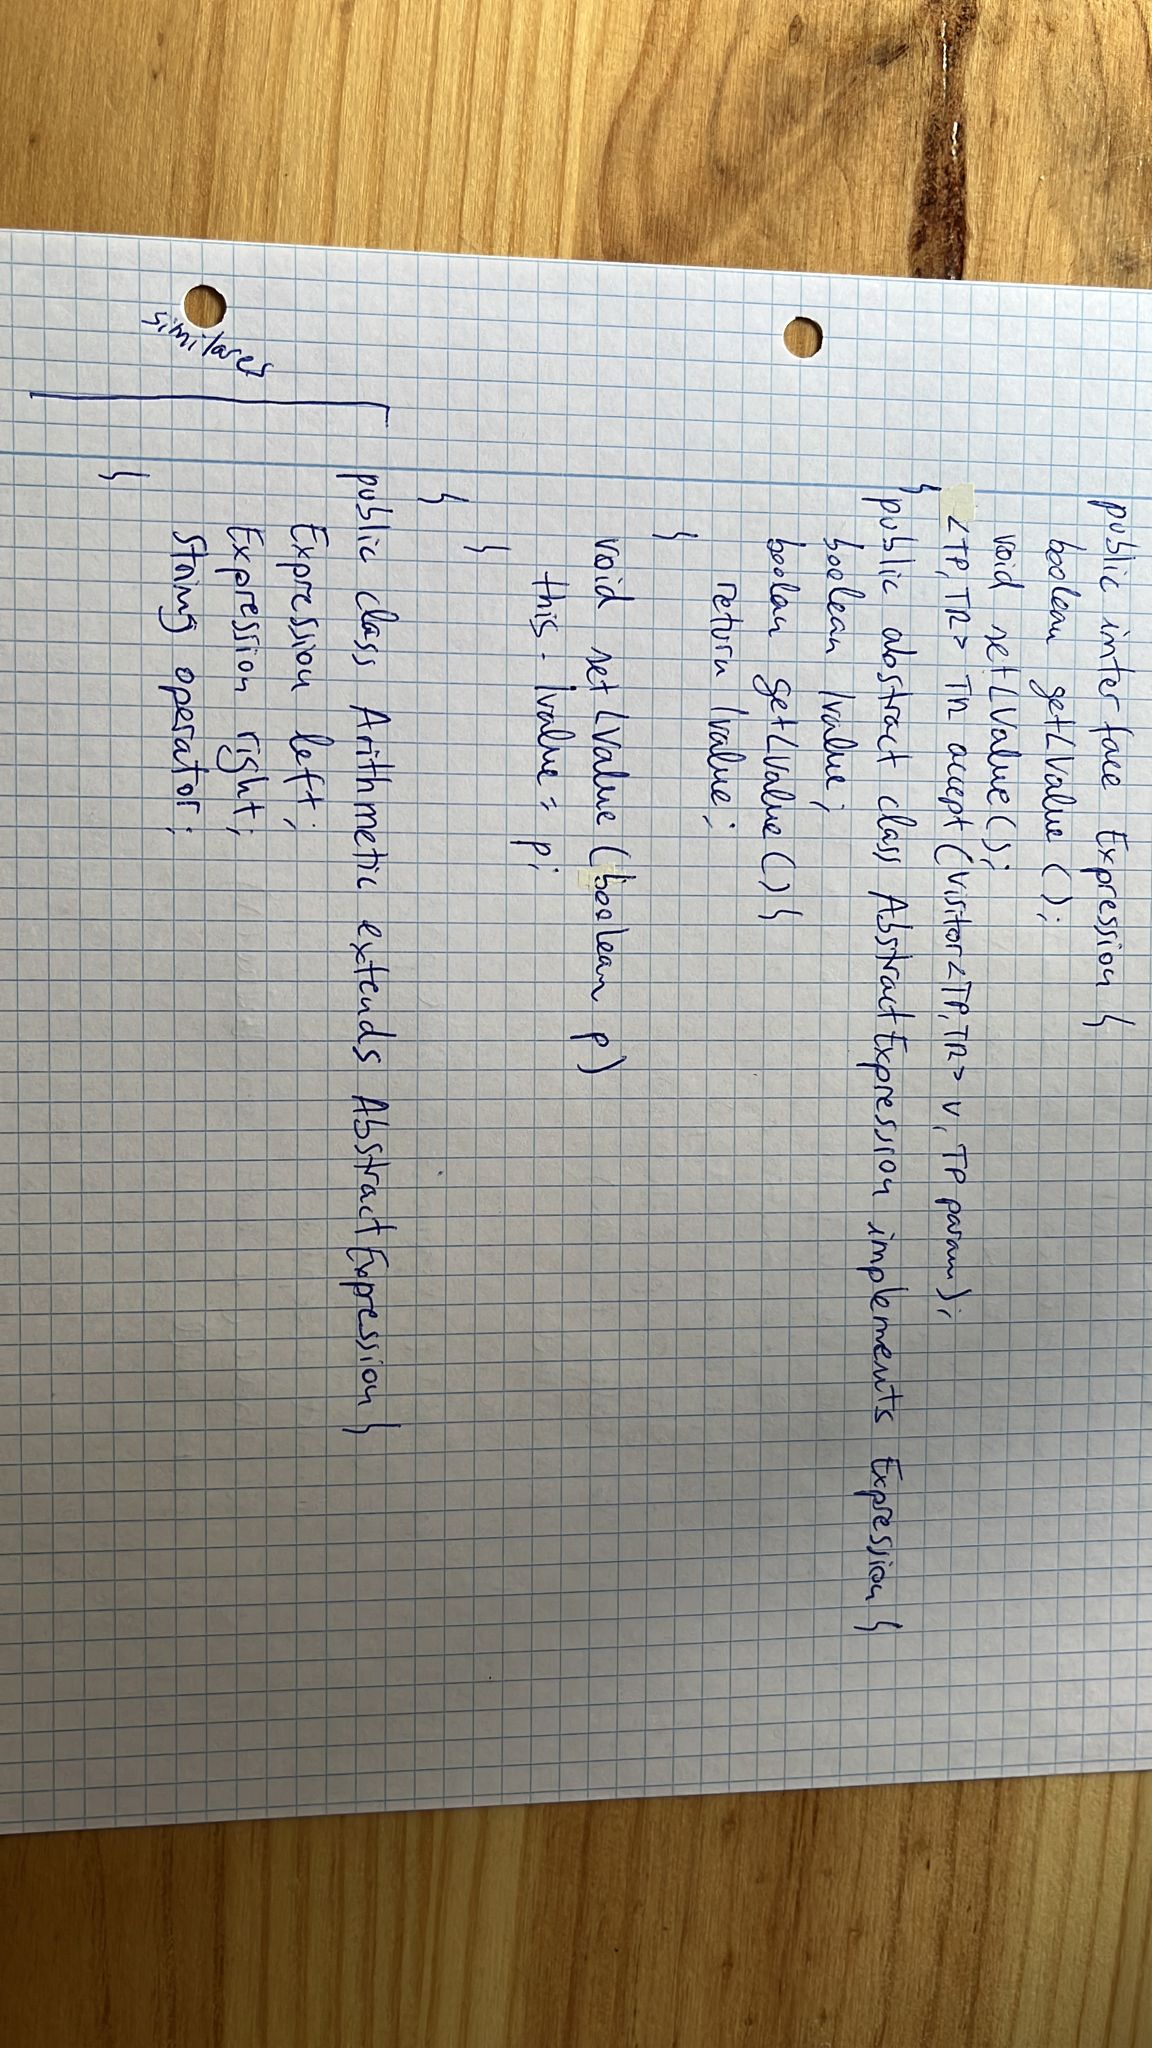 public interface Expression {
boolean getLvalue();
void setLvalue();
<TP, TR> TR accept(Visitor<TP, TR> v, TP param);
}
public abstract class AbstractExpression implements Expression {
boolean lvalue;
boolean getLvalue() {
return lvalue;
}
void setLvalue(boolean p)
this.lvalue = p;
}
}
public class Arithmetic extends AbstractExpression {
Expression left;
Expression right;
String operator;
}
similares